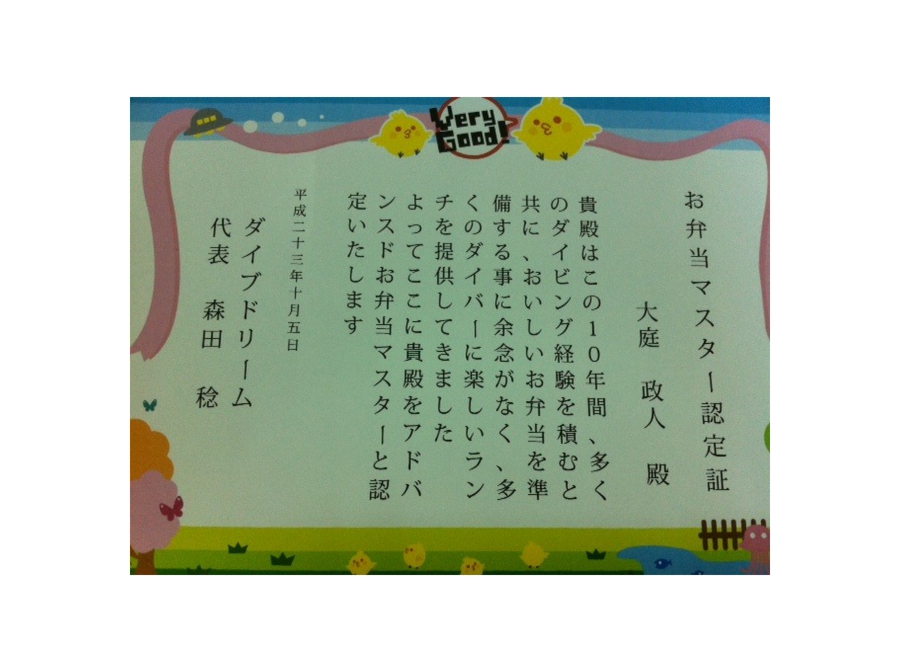 Very
Good!
お弁当マスター認定証
大庭 政人 殿
貴殿はこの10年間、多く
のダイビング経験を積むと
共に、おいしいお弁当を準
備する事に余念がなく、多
くのダイバーに楽しいラン
チを提供してきました
よってここに貴殿をアドバ
ンスドお弁当マスターと認
定いたします
平成二十三年十月五日
ダイブドリーム
代表 森田 稔